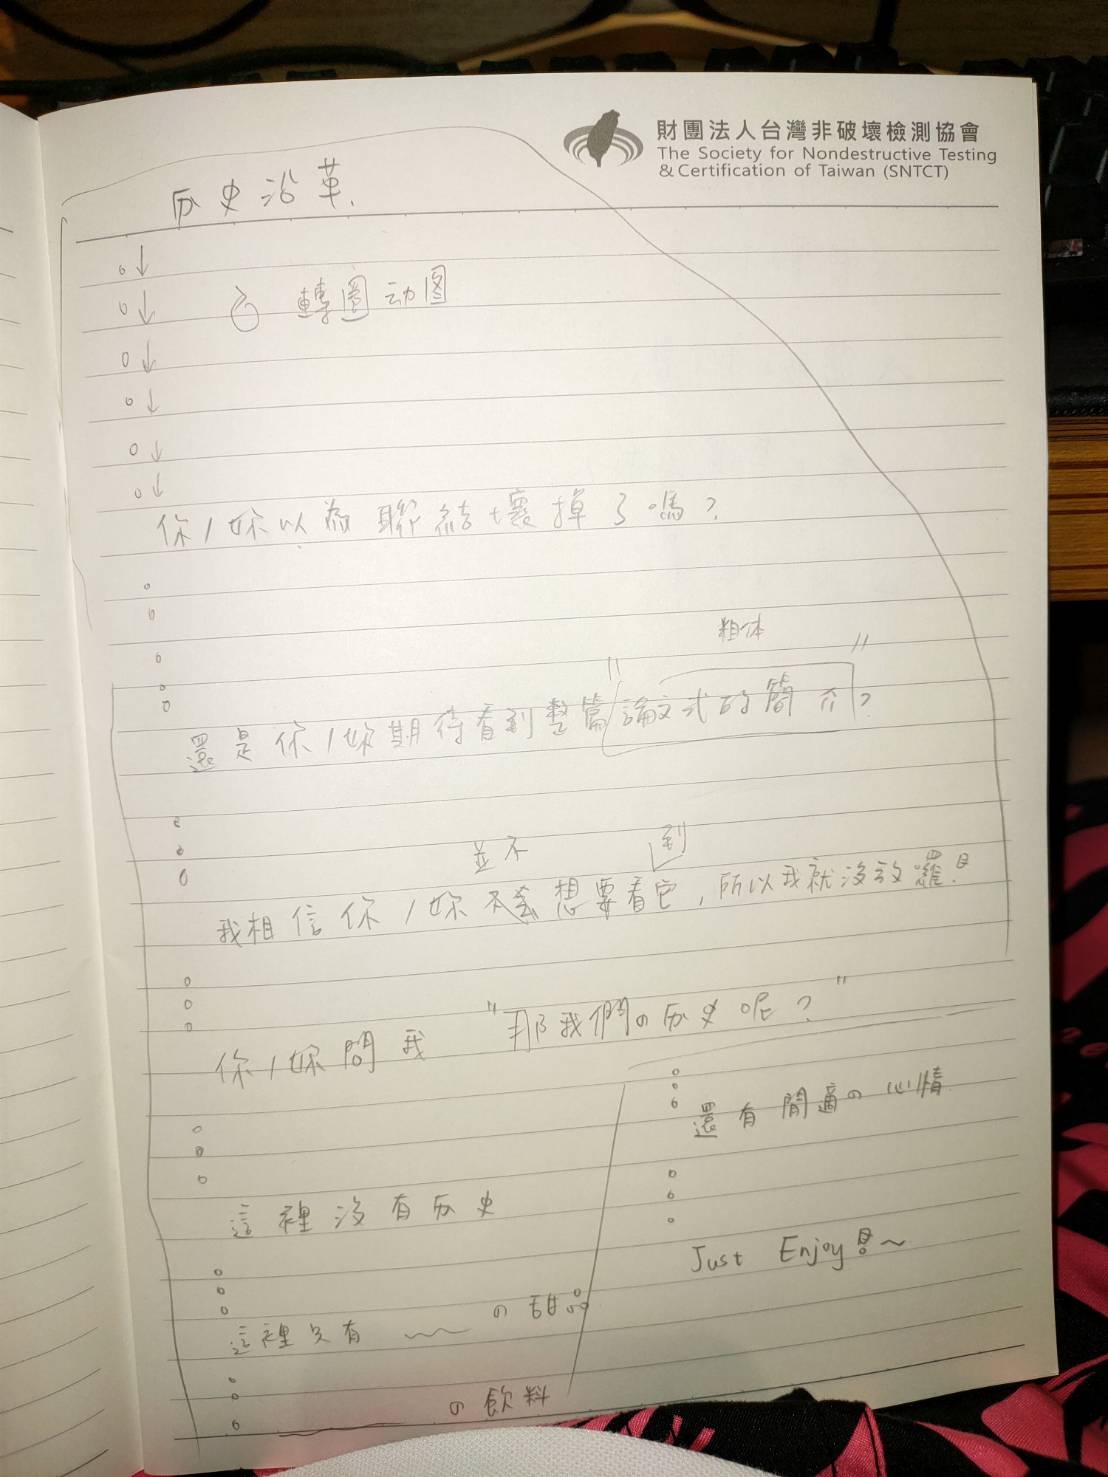 財團法人台灣非破壞檢測協會
The Society for Nondestructive Testing
& Certification of Taiwan (SNTCT)
历史沿革.
轉圈动图
你/妳以為聯結壞掉了嗎?
粗体
還是你/妳期待看到整篇"論文式的簡介"?
並不 到
我相信你/妳不會想要看它,所以我就沒放囉!
你/妳問我 "那我們の历史呢?"
這裡沒有历史
這裡只有 の甜品
の飲料
還有閒適の心情
Just Enjoy!~